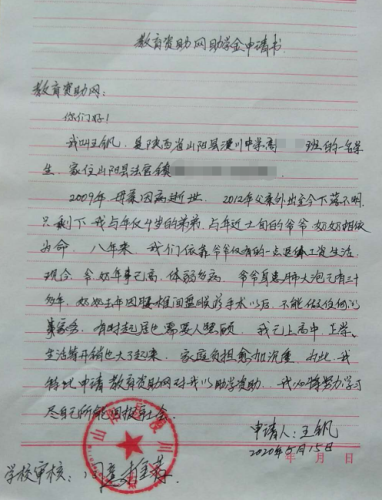 教育资助网助学金申请书
教育资助网:
你们好!
我叫王帆,是陕西省山阳县漫川中学高 班的一名学
生,家住山阳县法官镇
2009年母亲因病逝世,2012年父亲外出至今下落不明,
只剩下我与年仅4岁的弟弟,与年近七旬的爷爷、奶奶相依
为命,八年来,我们依靠爷爷仅有的一点退休工资生活,
现今,爷奶年事已高,体弱多病,爷爷身患肺大泡已有三十
多年,奶奶去年因腰椎间盘做的手术以后,不能做任何的
事家务,有时起居也需要人照顾,我已上高中,上学、
生活等开销也大了起来,家庭负担愈加沉重,为此,我
特此申请教育资助网对我以助学资助,我必将努力学习
尽自己所能回报社会。
申请人:王帆
2020年5月15日
年 月 日
学校审核:同意